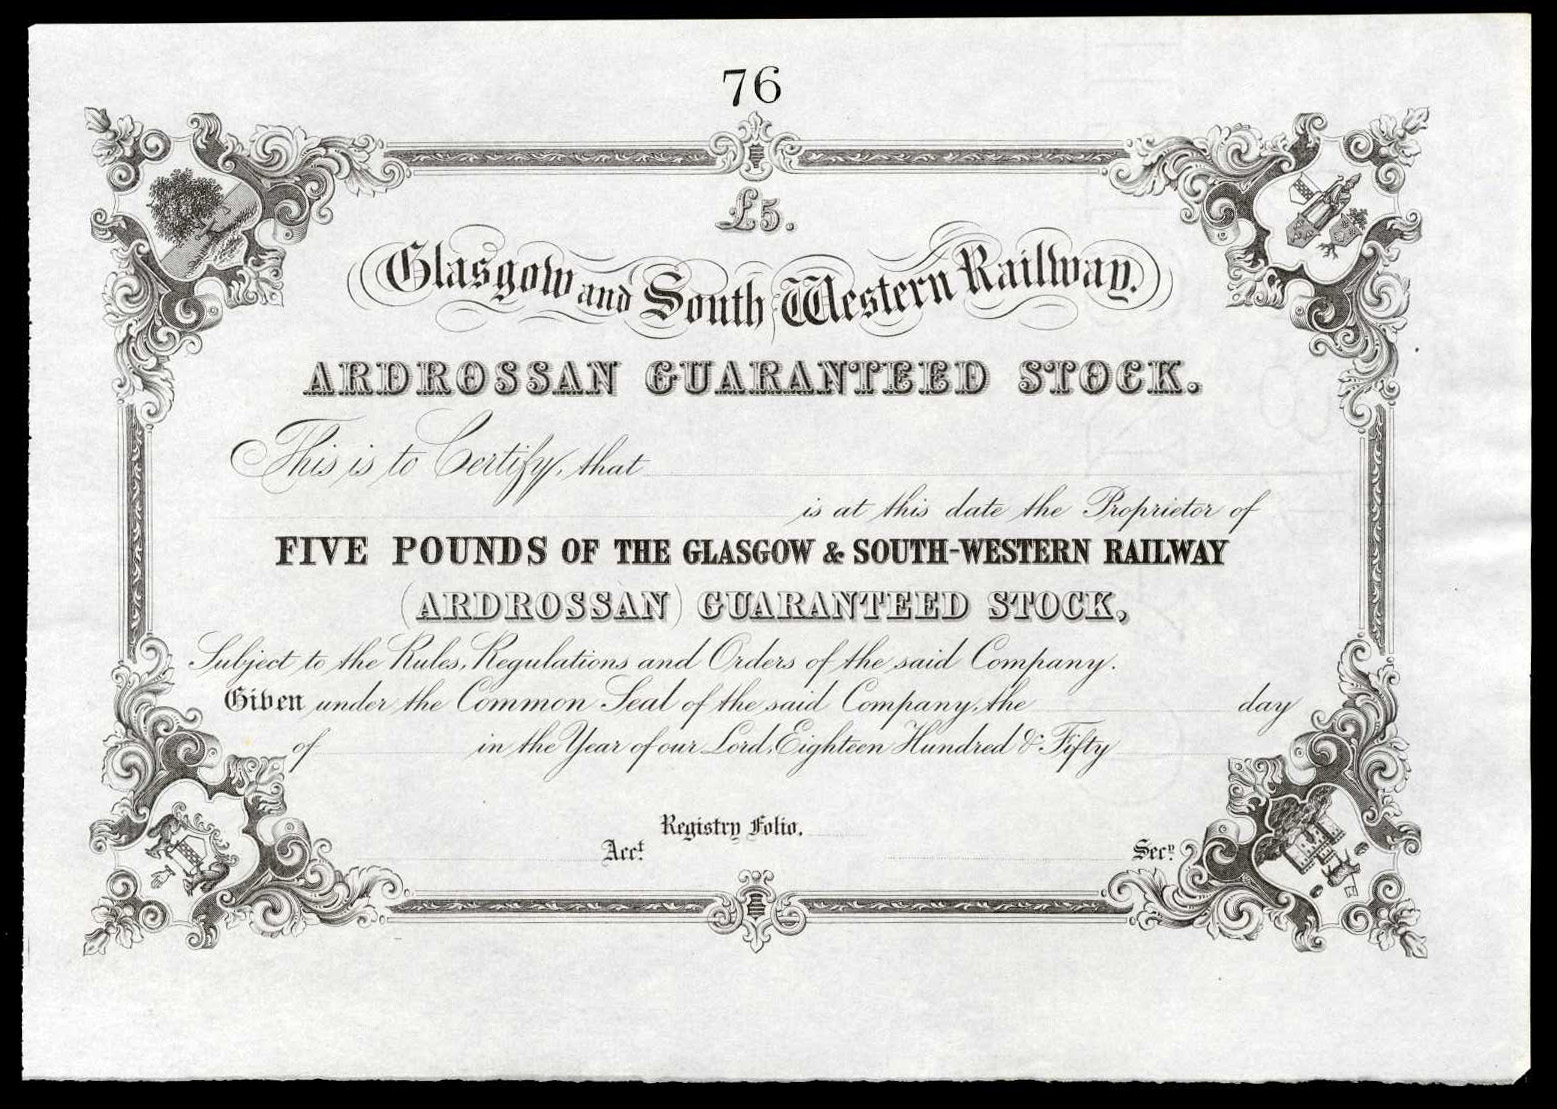 76
£5.
Glasgow and South Western Railway.
ARDROSSAN GUARANTEED STOCK.
This is to Certify, that
is at this date the Proprietor of
FIVE POUNDS OF THE GLASGOW & SOUTH-WESTERN RAILWAY
(ARDROSSAN) GUARANTEED STOCK,
Subject to the Rules, Regulations and Orders of the said Company.
Given under the Common Seal of the said Company, the day
of in the Year of our Lord, Eighteen Hundred & Fifty
Registry Folio.
Acct. Secy.